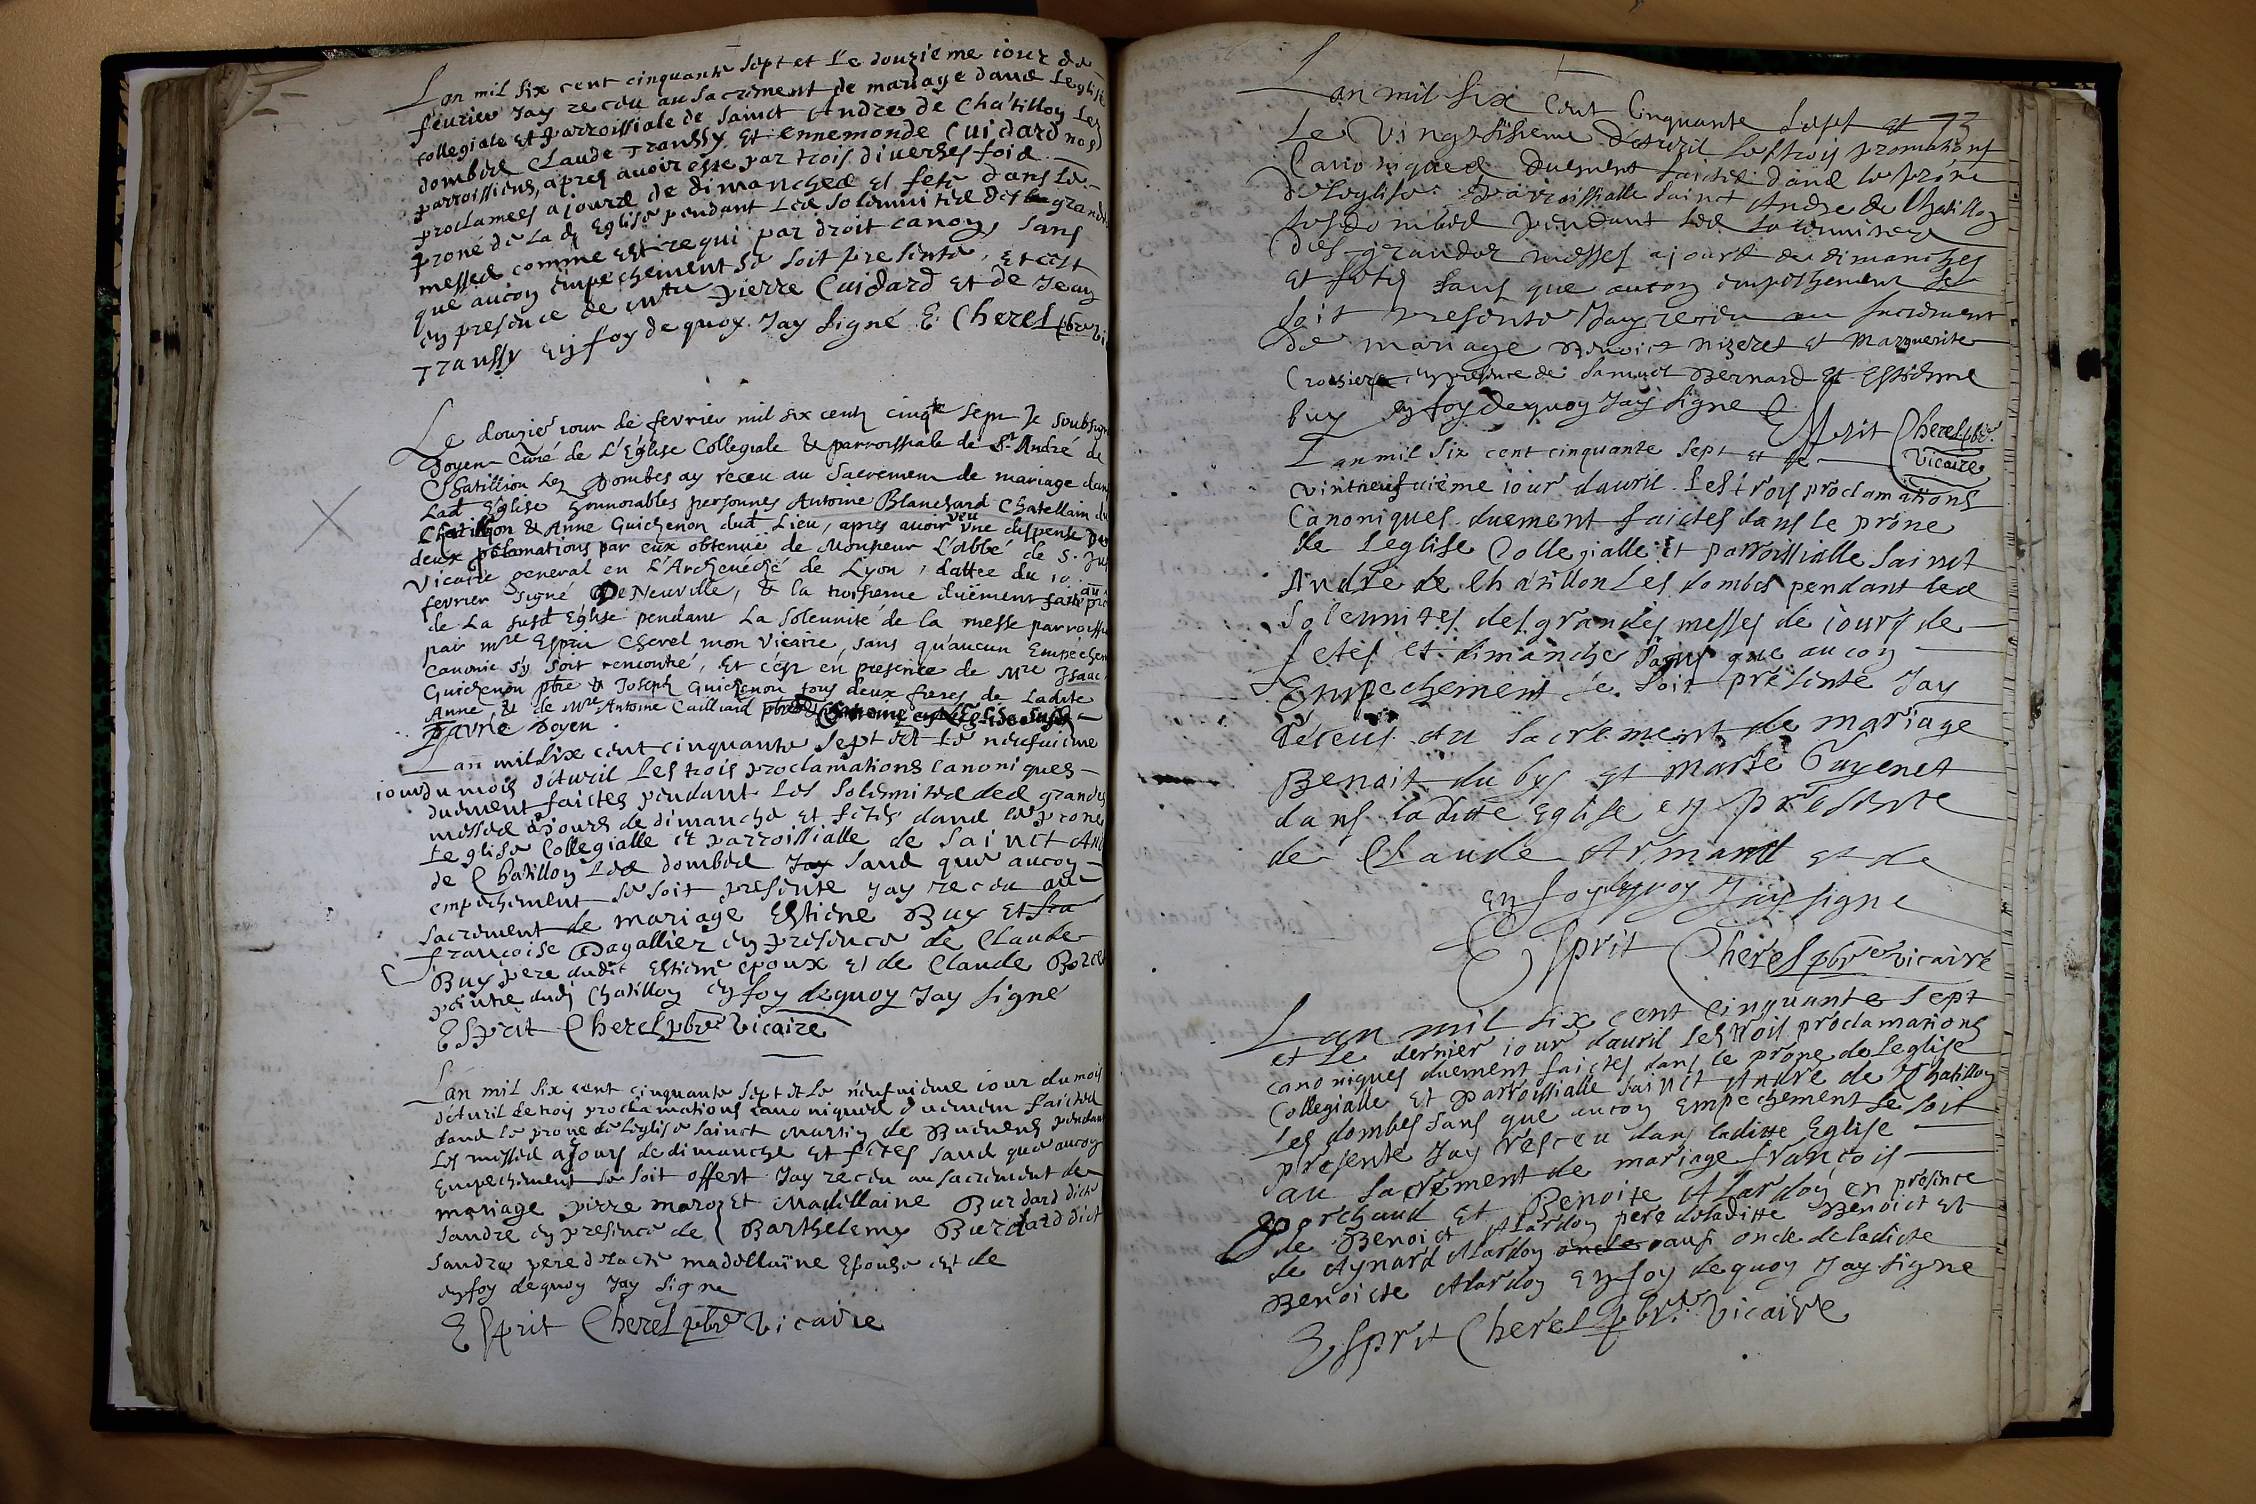 Lan mil six cent cinquante sept et le douzieme iour de
feurier Jay receu au sacrement de mariage dans Leglise
collegiale et parroissiale de sainct Andre de Chatillon Les
dombes Claude Traussy et ennemonde Cuidard nos
parroissiens, apres auoir este par trois diverses fois
proclames a jours de dimanches et fete dans le
prone de la d Eglise pendant Les solemnites des grandes
messes comme est requi par droit canon, sans
que aucon empechement se soit presente, et cest
en presence de Mtre pierre Cuidard et de Jean
Traussy en foy de quoy Jay signé E. Cherel pbre vi
Le douzie iour de fevrier mil six cents cinqte sept Je soubsign
Doyen Curé de L'Église Collegiale & parroissiale de St André de
Chatillion Les Dombes ay receu au sacrement de mariage dans
Lad Eglise honnorables personnes Antoine Blanchard Chatellain du
Chatillion & Anne Guichenon dud Lieu, apres auoir veu une dispense de
deux proclamations par eux obtenue de Monsieur L'Abbé de S. Jus
Vicaire general en L'Archeveché de Lyon, dattée du 10.
fevrier signé De Neuville, & la troisieme duement faite au pro
de La susd Eglise pendant La solennité de la messe parroissi
par mre Esprit Cherel mon vicaire, sans qu'aucun Empechem
Canonic s'y soit rencontré, Et c'est en presence de Mre Isaac
Guichenon pbre & Joseph Guichenon tous deux freres de Ladite
Anne, & de Mre Antoine Cailliard pbre
Favre Doyen
Lan mil six cent cinquante sept et Le neufuieme
iour du mois d'Auril Les trois proclamations canoniques
duement faictes pendant Les solemnites des grandes
messes a jours de dimanche et fetes dans le prone
Leglise Collegialle et parroissialle de sainct And
de Chatillon Les dombes Jay sans que aucon
empechement se soit presente Jay receu au
sacrement de mariage Estiene Buy et sra
francoise Dagallier en presence de Claude
Buy pere dudit Estiene epoux et de Claude
peintre dud Chatillon en foy de quoy Jay signé
Esprit Cherel pbre vicaire
Lan mil six cent cinquante sept et Le neufuieme iour du mois
d'Auril Le trois proclamations canoniques duement faictes
dans le prone de Leglise sainct Martin de Buenens pendant
Les messes a Jours de dimanche et fetes sans que aucon
Empechement se soit offert Jay receu au sacrement de
mariage pierre maroz et Madellaine Burdard dicte
sandre en presence de Barthelemy Burdard dict
sandre pere de lacte madellaine Epouse et de
en foy de quoy Jay signe
Esprit Cherel pbre vicaire
Lan mil six cent Cinquante sept et 73
Le vingt sisieme d'Auril Les trois
Canoniques duement faictes dans le prone
de Leglise parroissialle sainct Andre de Chatillon
les dombes pendant les solemnites
des grandes messes a jours de dimanches
et fetes sans que aucon empechement se
soit presente Jay receu au sacrement
de mariage Benoict Nizeret et Marguerite
Croisiere en presence de Samuel Bernard et Estienne
buy en foy de quoy Jay signe
Esprit Cherel pbre
vicaire
Lan mil six cent cinquante sept et le
vintneufuieme iour dauril Les trois proclamations
Canoniques duement faictes dans le prone
de Leglise Collegialle et parroissialle sainct
Andre de Chatillon Les dombes pendant Les
solennites des grandes messes de iours de
fetes et dimanche sans que aucon
Empechement se soit présenté Jay
receus au sacrement de mariage
Benoit du bys et Marie Guyenet
dans laditte Eglise en presence
de Claude Armand et de
en foy de quoy Jay signe
Esprit Cherel pbre vicaire
Lan mil six cent cinquante sept
et Le dernier iour dauril Les trois proclamations
canoniques duement faictes dans le prone de Leglise
Collegialle et parroissialle sainct Andre de Chatillon
Les dombes sans que aucon Empechement se soit
presente Jay resceu dans laditte Eglise
au sacrement de mariage francois
porchaud et Benoite Alardon en presence
de Benoict Alardon pere de laditte Benoict et
de Aynard Alardon oncle aussi oncle de ladicte
Benoicte Alardon En foy de quoy Jay signe
Esprit Cherel pbre vicaire